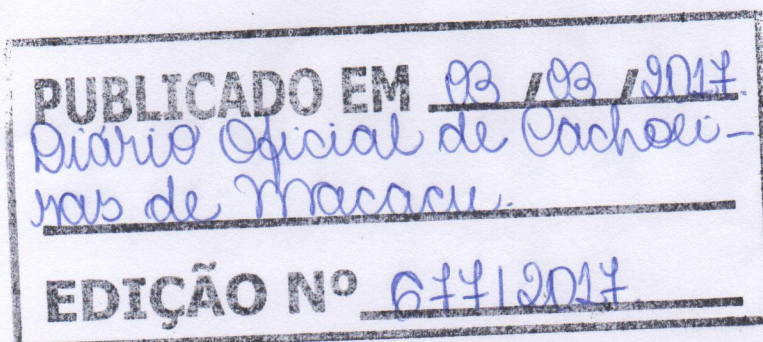 PUBLICADO EM 03/03/2017.
Diário Oficial de Cachoei-
ras de Macacu.
EDIÇÃO Nº 677/2017.